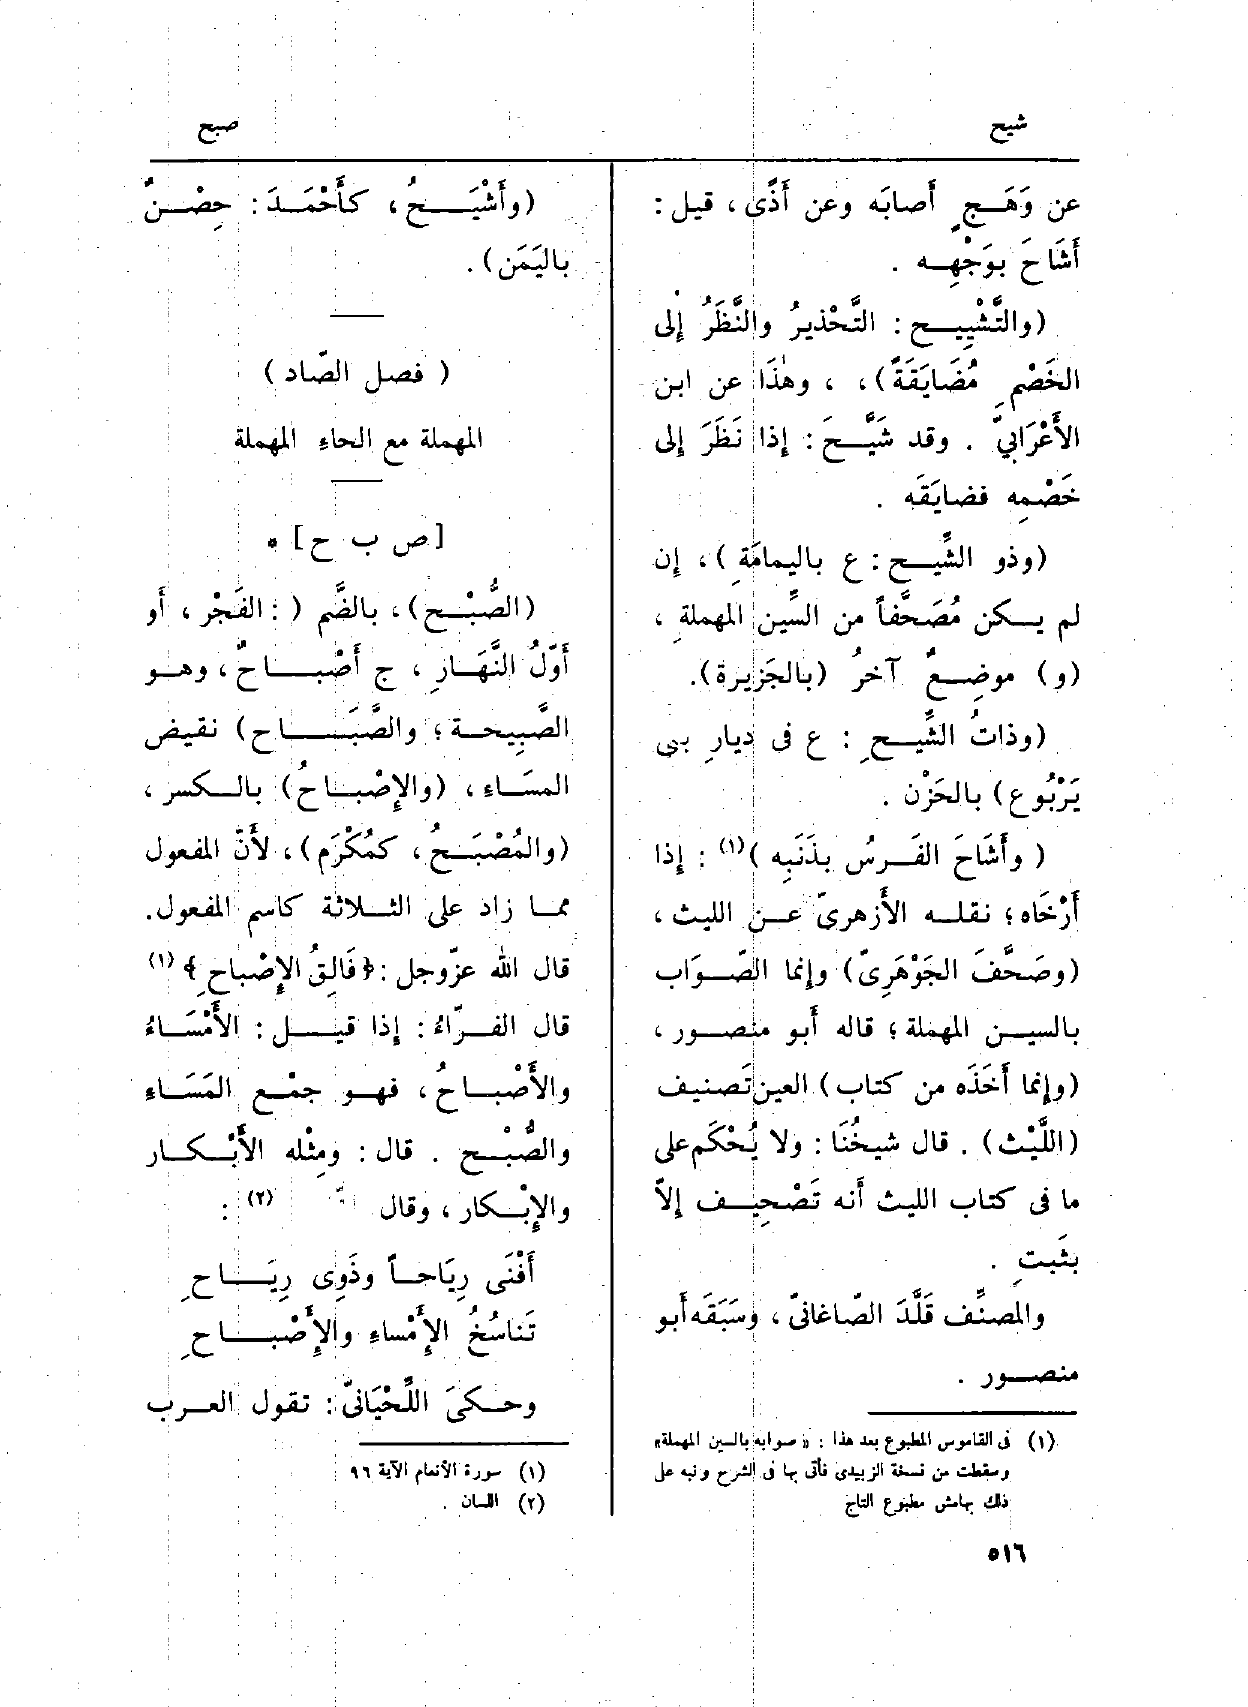 شيح
صبح
عن وَهَجٍ أَصابَه وعن أَذًى، قيل:
أَشَاحَ بوَجْهِه .
(والتَّشْيِيح: التَّحْذيرُ والنَّظَرُ إِلى
الخَصْمِ مُضَايَقَةً)، ، وهٰذَا عن ابن
الأَعْرَابيّ . وقد شَيَّحَ: إِذا نَظَرَ إِلى
خَصْمِه فضايَقَه .
(وذو الشِّيح: ع باليمامَةِ)، إِن
لم يكن مُصَحَّفاً من السِّين المهملةِ ،
(و) موضِعٌ آخرُ (بالجَزيرة).
(وذاتُ الشِّيحِ: ع فى ديارِ بنى
يَرْبُوع) بالحَزْن .
(وأَشاحَ الفَرسُ بذَنَبِه)(١) : إِذا
أَرْخَاه؛ نقله الأَزهرىّ عن الليث ،
(وصَحَّفَ الجَوْهَرِىّ) وإِنما الصّوَاب
بالسين المهملة؛ قاله أَبو منصور ،
(وإِنما أَخَذَه من كتاب) العين تَصنيف
(اللَّيْث) . قال شيخُنَا: ولا يُحْكَم على
ما فى كتاب الليث أَنه تَصْحِيف إِلاّ
بثَبتِ .
والمصنِّف قَلَّدَ الصّاغانىّ ، وسَبَقَه أَبو
منصور .
(١) فى القاموس المطبوع بعد هذا : «صوابه بالسين المهملة»
وسقطت من نسخة الزبيدى فأتى بها فى الشرح ونبه على
ذلك بهامش مطبوع التاج
(وأَشْيَحُ، كأَحْمَدَ: حِصْنٌ
باليَمَن).
( فصل الصّاد )
المهملة مع الحاءِ المهملة
[ص ب ح] *
(الصُّبْح)، بالضَّم ( : الفَجْر ، أَو
أَوّلُ النَّهَارِ ، ج أَصْباحٌ ، وهو
الصَّبِيحة؛ والصَّبَاح) نقيض
المسَاءِ ، (والإِصْباحُ) بالكسر ،
(والمُصْبَحُ، كمُكْرَم)، لأَنّ المفعول
مما زاد على الثلاثة كاسم المفعول.
قال الله عزّوجل :﴿فَالِقُ الإِصْباحِ﴾(١)
قال الفرّاءُ: إِذا قيل: الأَمْسَاءُ
والأَصْباحُ، فهو جمْع المَسَاءِ
والصُّبْح . قال: ومِثْله الأَبْكار
والإِبْكار ، وقال (٢) :
أَفْنَى رِيَاحاً وذَوِى رِيَاحِ
تَناسُخُ الإِمْساءِ والإِصْباحِ
وحكىَ اللِّحْيَانىّ: تقول العرب
(١) سورة الأنعام الآية ٩٦
(٢) اللسان .
٥١٦